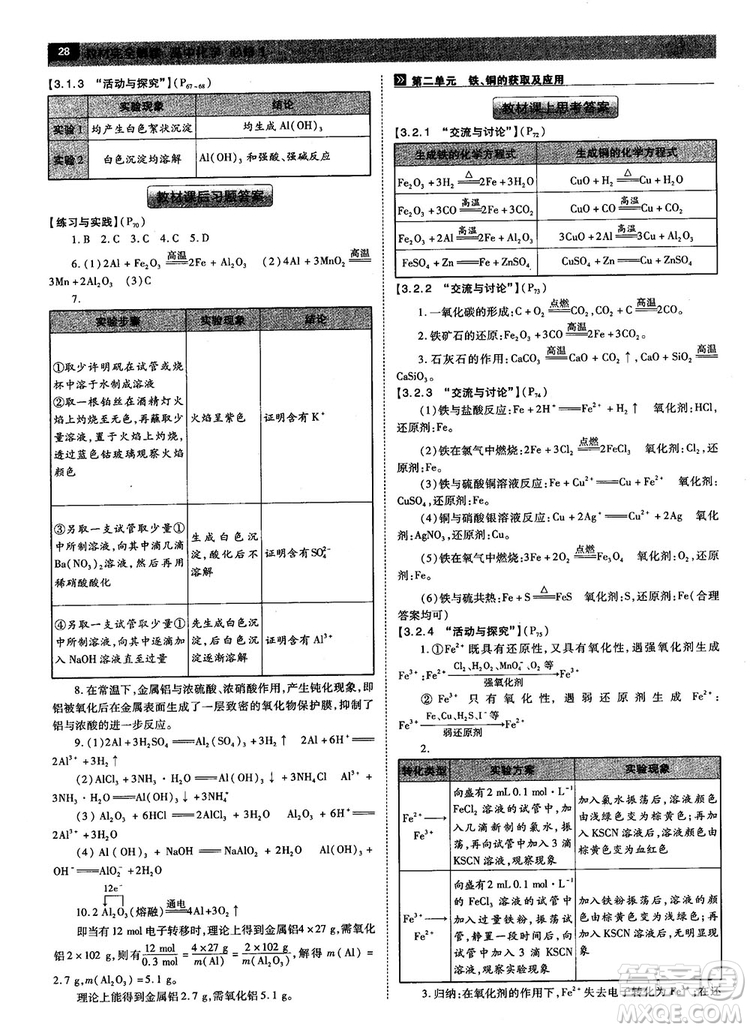 28 教材完全解读 高中化学 必修1
【3.1.3 “活动与探究”】(P₆₇₋₆₈)
实验现象 结论
实验1 均产生白色絮状沉淀 均生成 Al(OH)₃
实验2 白色沉淀均溶解 Al(OH)₃ 和强酸、强碱均反应
教材课后习题答案
【练习与实践】(P₇₀)
1. B 2. C 3. C 4. C 5. D
6. (1)2Al + Fe₂O₃ =高温= 2Fe + Al₂O₃ (2)4Al + 3MnO₂ =高温=
3Mn + 2Al₂O₃ (3)C
7.
实验步骤 实验现象 结论
①取少许明矾在试管或烧
杯中溶于水制成溶液
②取一根铂丝在酒精灯火
焰上灼烧至无色,再蘸取少
量溶液在火焰上灼烧,
透过蓝色钴玻璃观察火焰
颜色
火焰呈紫色 证明含有 K⁺
③另取一支试管取少量①
中所制溶液,向其中滴几滴
Ba(NO₃)₂ 溶液,再加入
稀硝酸酸化
生成白色沉
淀,酸化后不
溶解
证明含有 SO₄²⁻
④另取一支试管取少量①
中所制溶液,向其中逐滴加
入 NaOH 溶液至过量
先生成白色沉
淀,后白色沉淀
溶解
证明含有 Al³⁺
8. 在常温下,金属铝与浓硫酸、浓硝酸作用,产生钝化现象,即
铝被氧化后在金属表面生成了一层致密的氧化物保护膜,抑制了
铝与浓酸的进一步反应。
9. (1)2Al + 3H₂SO₄ == Al₂(SO₄)₃ + 3H₂↑ 2Al + 6H⁺ ==
2Al³⁺ + 3H₂↑
(2)AlCl₃ + 3NH₃·H₂O == Al(OH)₃↓ + 3NH₄Cl
Al³⁺ + 3NH₃·H₂O == Al(OH)₃↓ + 3NH₄⁺
(3)Al₂O₃ + 6HCl == 2AlCl₃ + 3H₂O Al₂O₃ + 6H⁺ ==
2Al³⁺ + 3H₂O
(4)Al(OH)₃ + NaOH == NaAlO₂ + 2H₂O
Al(OH)₃ + OH⁻ == AlO₂⁻ + 2H₂O
12e⁻
10. 2 Al₂O₃(熔融) =通电= 4Al + 3O₂↑
即当有 12 mol 电子转移时,理论上得到金属铝4×27 g,需氧化
铝 2×102 g,故有 12 mol/0.3 mol = 4×27 g/m(Al) = 2×102 g/m(Al₂O₃)。解得:m(Al) =
2.7 g, m(Al₂O₃) = 5.1 g。
理论上能得到金属铝 2.7 g,需氧化铝 5.1 g。
第二单元 铁、铜的获取及应用
教材课上思考答案
【3.2.1 “交流与讨论”】(P₇₂)
生成铁的化学方程式 生成铜的化学方程式
Fe₂O₃ + 3H₂ =△= 2Fe + 3H₂O CuO + H₂ =△= Cu + H₂O
Fe₂O₃ + 3CO =高温= 2Fe + 3CO₂ CuO + CO =高温= Cu + CO₂
Fe₂O₃ + 2Al =高温= 2Fe + Al₂O₃ 3CuO + 2Al =高温= 3Cu + Al₂O₃
FeSO₄ + Zn == Fe + ZnSO₄ CuSO₄ + Zn == Cu + ZnSO₄
【3.2.2 “交流与讨论”】(P₇₃)
1. 一氧化碳的形成: C + O₂ =点燃= CO₂, CO₂ + C =高温= 2CO。
2. 铁矿石的还原: Fe₂O₃ + 3CO =高温= 2Fe + 3CO₂。
3. 石灰石的作用: CaCO₃ =高温= CaO + CO₂↑, CaO + SiO₂ =高温=
CaSiO₃。
【3.2.3 “交流与讨论”】(P₇₄)
(1)铁与盐酸反应: Fe + 2H⁺ == Fe²⁺ + H₂↑ 氧化剂: HCl,
还原剂: Fe。
(2)铁在氯气中燃烧: 2Fe + 3Cl₂ =点燃= 2FeCl₃ 氧化剂: Cl₂,还
原剂: Fe。
(3)铁与硫酸铜溶液反应: Fe + Cu²⁺ == Fe²⁺ + Cu 氧化剂:
CuSO₄,还原剂: Fe。
(4)铜与硝酸银溶液反应: Cu + 2Ag⁺ == Cu²⁺ + 2Ag 氧化剂:
AgNO₃,还原剂: Cu。
(5)铁在氧气中燃烧: 3Fe + 2O₂ =点燃= Fe₃O₄ 氧化剂: O₂,还原
剂: Fe。
(6)铁与硫共热: Fe + S =△= FeS 氧化剂: S,还原剂: Fe(合理
答案均可)
【3.2.4 “活动与探究”】(P₇₅)
1. ①Fe²⁺ 既具有还原性,又具有氧化性,遇强氧化剂生成
Fe³⁺: Fe²⁺ Cl₂、H₂O₂、MnO₄⁻、O₂等 强氧化剂→ Fe³⁺
② Fe³⁺ 只有氧化性,遇弱还原剂生成
Fe²⁺: Fe³⁺ Fe、Cu、H₂S、I⁻等 弱还原剂→ Fe²⁺
2.
转化类型 实验方案 实验现象
Fe²⁺→Fe³⁺
向盛有 2 mL 0.1 mol·L⁻¹
FeCl₂ 溶液的试管中加
入几滴新制的氯水,再
向试管中加入 3 滴
KSCN 溶液,观察现象
加入氯水振荡后,溶液颜色
由浅绿色变为棕黄色;再加
入 KSCN 溶液后,溶液颜色
由棕黄色变为血红色
Fe³⁺→Fe²⁺
向盛有 2 mL 0.1 mol·L⁻¹
的 FeCl₃ 溶液的试管
中加入过量铁粉,振
荡,静置一段时间后,
再向试管中加入 3 滴
KSCN 溶液,观察现象
加入铁粉振荡后,溶液颜色
由棕黄色变为浅绿色;再加
入 KSCN 溶液后,无明显现
象
3. 归纳:在氧化剂的作用下,Fe²⁺ 失去电子转化为 Fe³⁺;在还